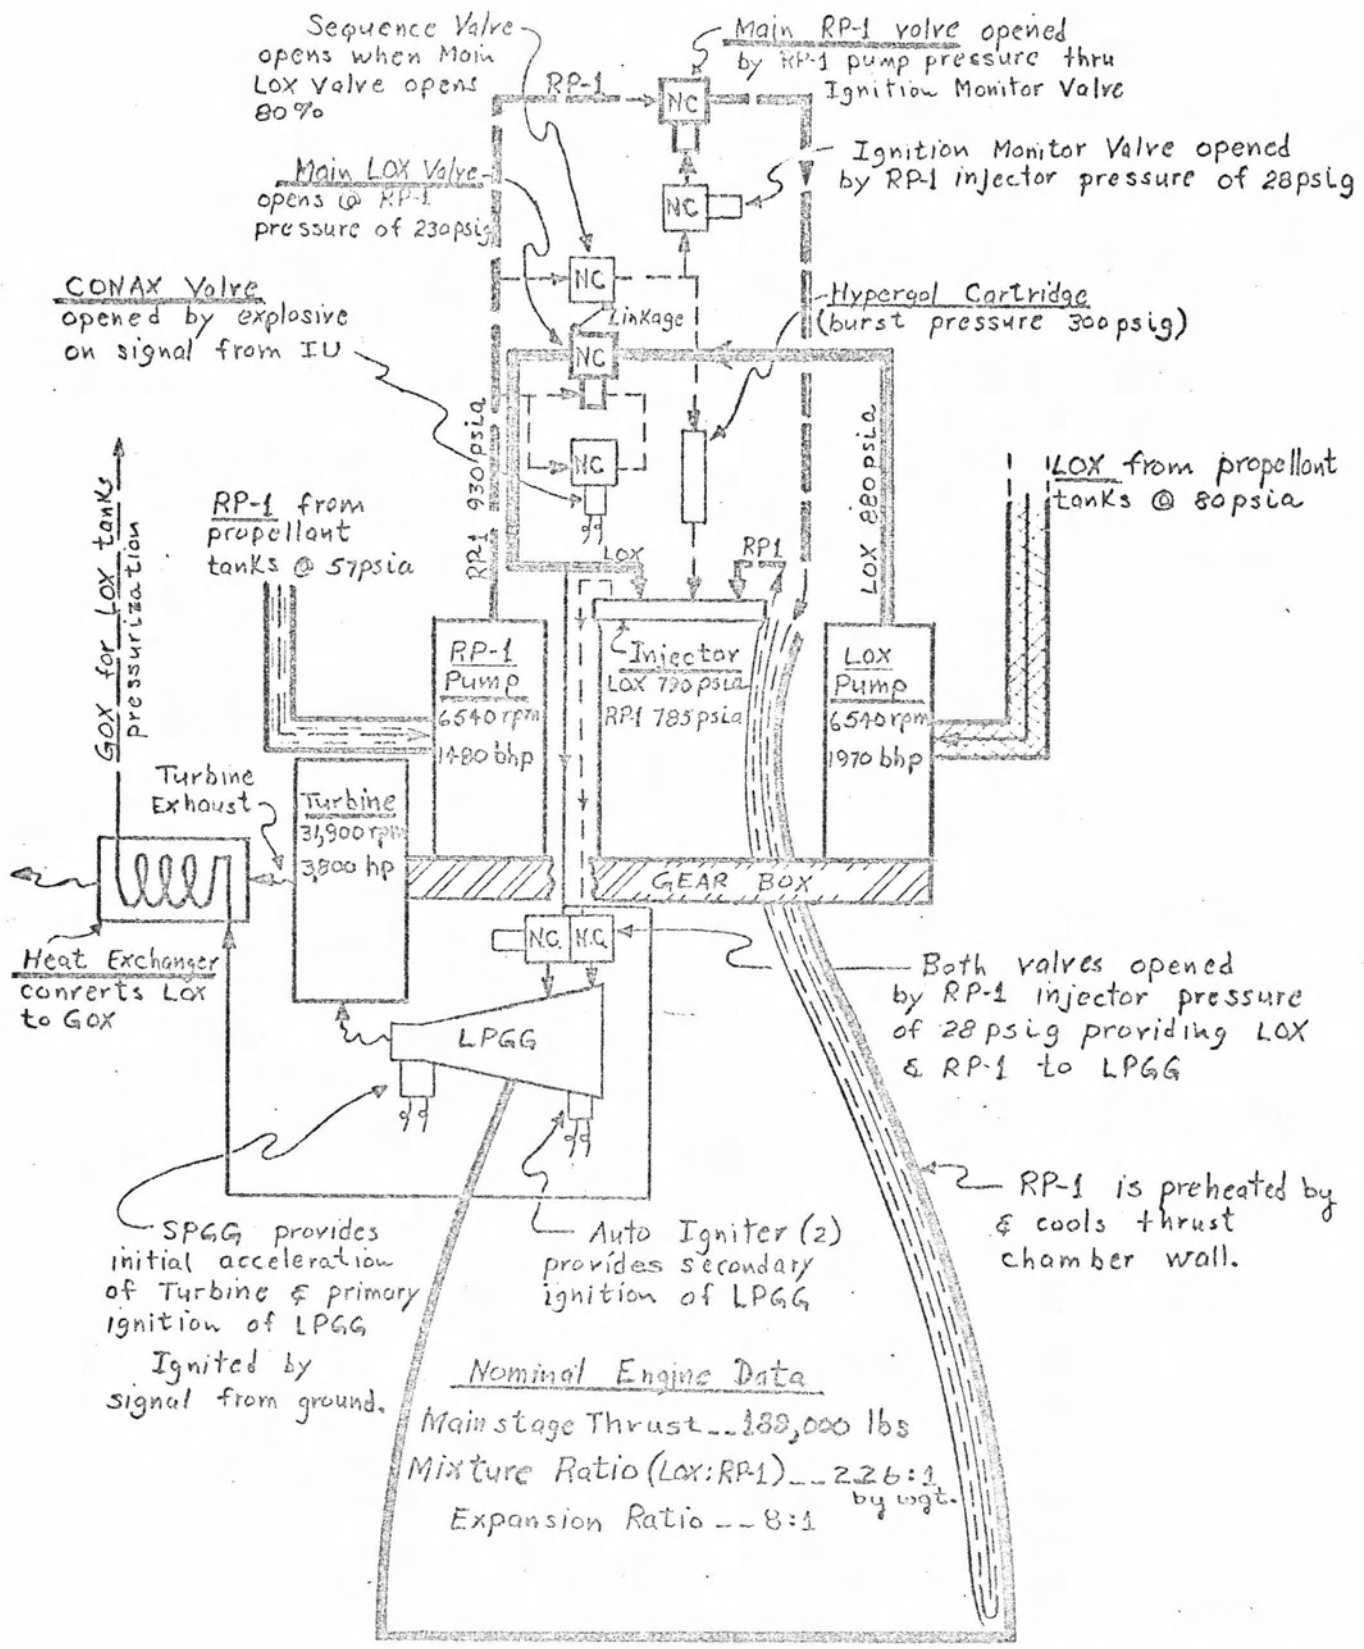 Sequence Valve
opens when Main
LOX Valve opens
80%
Main RP-1 valve opened
by RP-1 pump pressure thru
Ignition Monitor Valve
RP-1
NC
Ignition Monitor Valve opened
by RP-1 injector pressure of 28psig
NC
Main LOX Valve
opens @ RP-1
pressure of 230psig
NC
Linkage
CONAX Valve
opened by explosive
on signal from IU
NC
Hypergol Cartridge
(burst pressure 300psig)
NC
RP1 930psia
LOX 880psia
LOX from propellant
tanks @ 80psia
RP-1 from
propellant
tanks @ 57psia
GOX for LOX tanks
pressurization
LOX
RP1
RP-1
Pump
6540 rpm
1480 bhp
Injector
LOX 790 psia
RP-1 785 psia
LOX
Pump
6540 rpm
1970 bhp
Turbine
Exhaust
Turbine
31,900 rpm
3,800 hp
GEAR BOX
N.C.
N.C.
Heat Exchanger
converts LOX
to GOX
Both valves opened
by RP-1 injector pressure
of 28psig providing LOX
& RP-1 to LPGG
LPGG
RP-1 is preheated by
& cools thrust
chamber wall.
SPGG provides
initial acceleration
of Turbine & primary
ignition of LPGG
Ignited by
signal from ground.
Auto Igniter (2)
provides secondary
ignition of LPGG
Nominal Engine Data
Mainstage Thrust__188,000 lbs
Mixture Ratio (LOX:RP-1)__2.26:1
by wgt.
Expansion Ratio __ 8:1